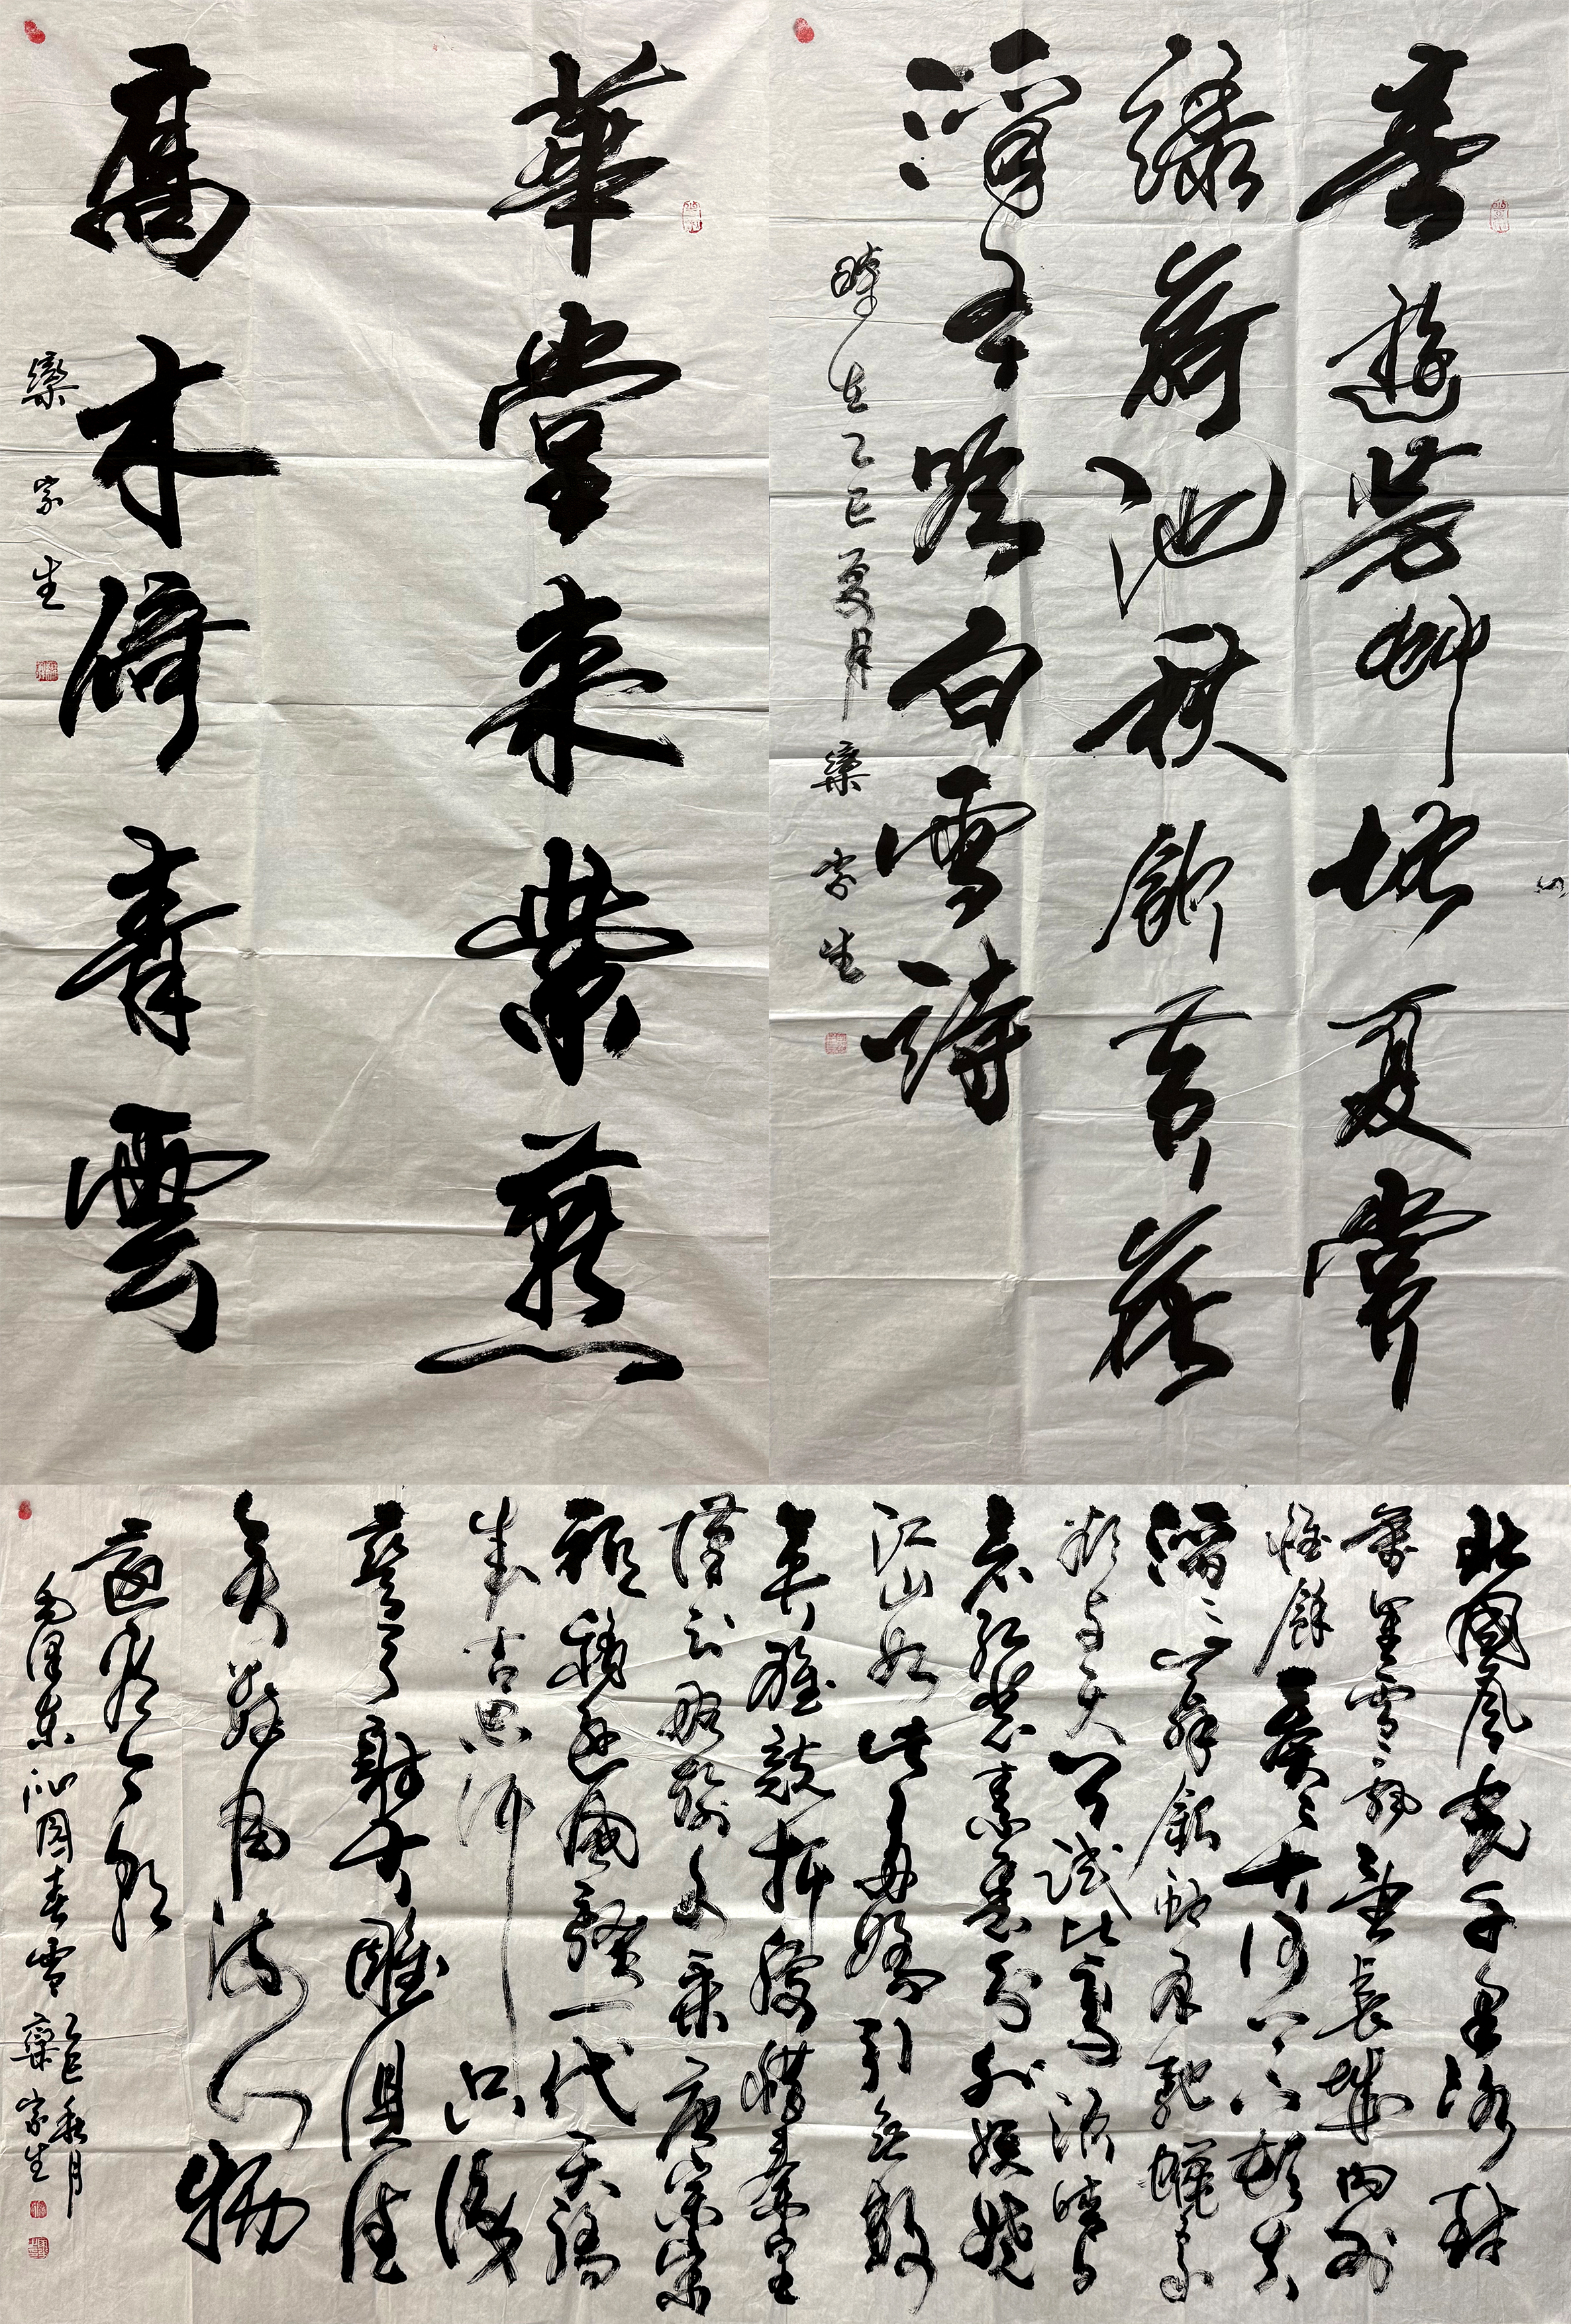 華堂來紫燕
高木倚青雲
欒家生
春遊芳草地夏賞
綠荷池秋飲黃花
酒冬吟白雪詩
時在乙巳夏月欒家生
北國風光千里冰封
萬里雪飄望長城內外
惟餘莽〻大河上下頓失
滔〻山舞銀蛇原馳蠟象
欲與天公試比高須晴日
看紅裝素裹分外妖嬈
江山如此多嬌引無數
英雄競折腰惜秦皇
漢武略輸文采唐宗宋
祖稍遜風騷一代天驕
成吉思汗只識
彎弓射大雕俱往
矣數風流人物
還看今朝
毛澤東沁園春雪
乙巳秋月
欒家生